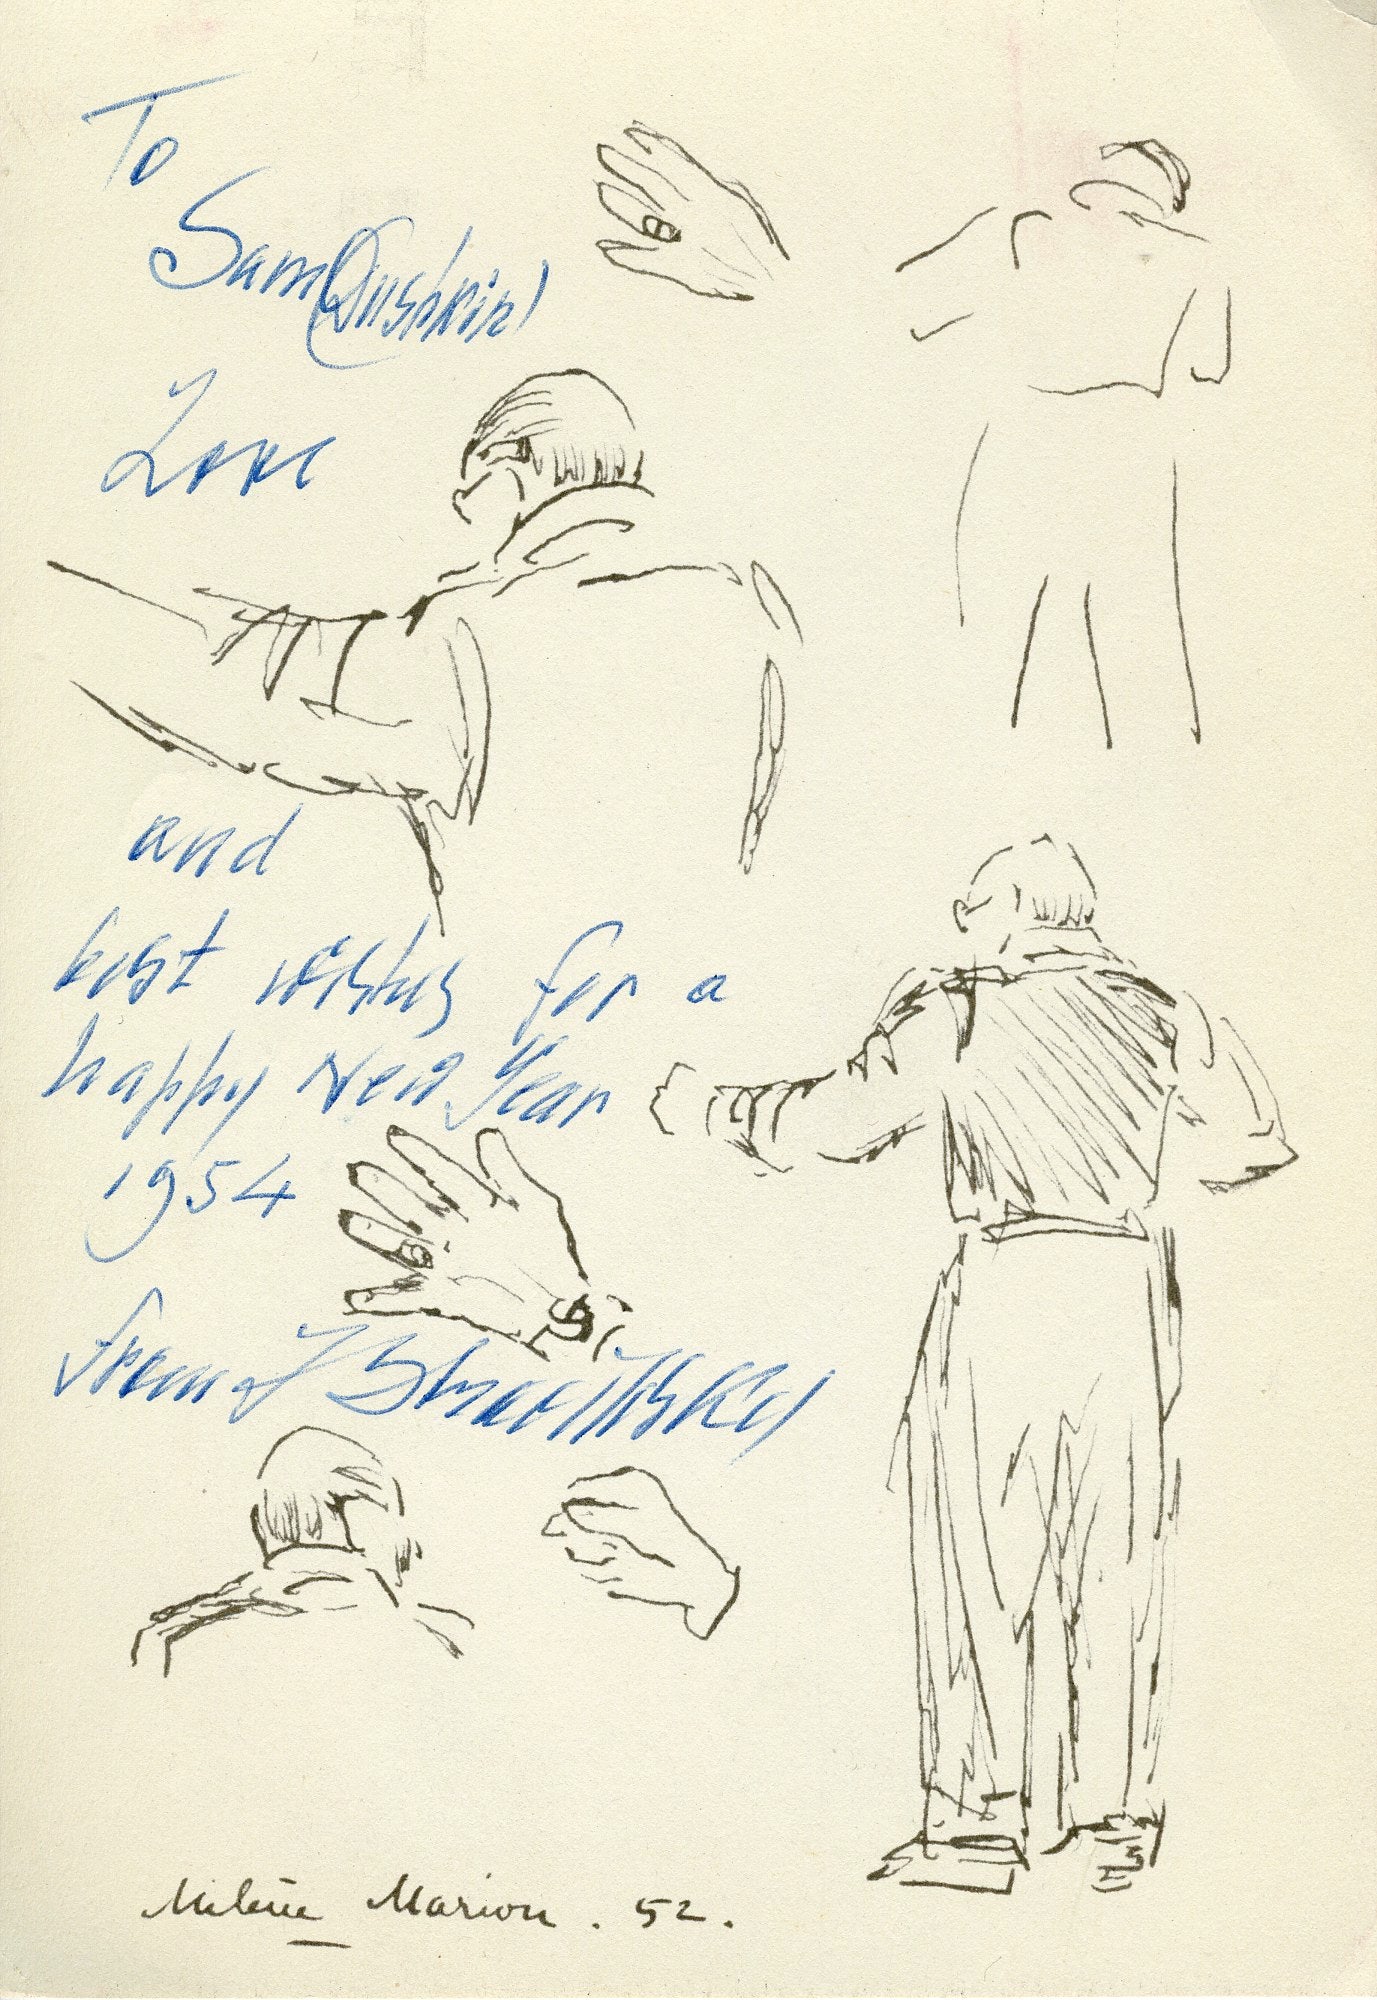 To
Sam (Dushkin)
Love
and
best wishes for a
happy New Year
1954
from I Strawinsky
Milein Marion. 52.